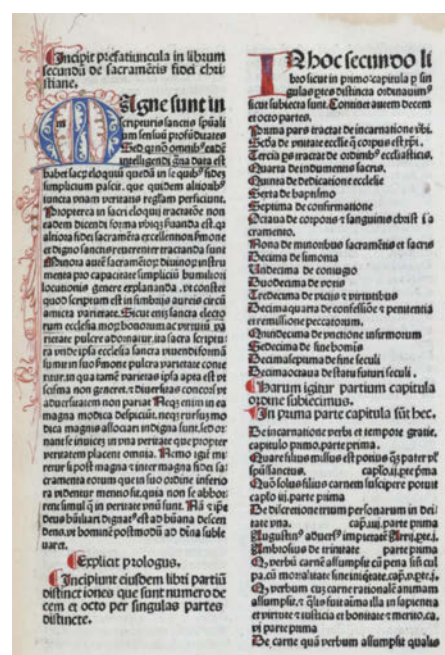 Incipit prefatiuncula in librum
secundū de sacramētis fidei chri
stiane.
Magne sunt in
scripturis sanctis spūali
um sensuū profūditates
Sed qꝛ nō omnibꝰ eadē
intelligendi gr̄a data est
habet sacꝝ eloquiū quedā in se quibꝰ fides
simplicium pascit. que quidem altioribꝰ
iuncta vnam veritatis reglam perficiunt.
Propterea in sacri eloquij tractatōe non
eadem dicendi forma vbiqꝫ seruanda est. qꝛ
altiora fidei sacramēta excellenti sermone
et digno sanctis reuerenter tractanda sunt
Minora autē sacramētoꝝ diuinoꝝ instru
menta pro capacitate simpliciū humiliori
locutionis genere explananda. vt constet
quod scriptum est in fimbrijs aureis circū
amicta varietate. Sicut enī sancta electo
rum ecclesia moꝝ bonorum ac virtutū va
rietate pulcre adornatur. ita sacra scriptu
ra vnde ipsa ecclesia sancta viuendi formā
sumit in suo sermone pulcra varietate conte
xitur. in qua tamē varietas ipsa apta est vt
scisma non generet. et diuersitas concors vt
aduersitatem non pariat. Neqꝫ enim in ea
magna modica despiciūt. neqꝫ rursus mo
dica magnis associari indigna sunt. sed or
nant se inuicē in vna veritate que propter
veritatem placent omnia. Nemo igit mi
retur si post magna et inter magna fidei sa
cramenta eorum que in suo ordine inferio
ra videntur mentio sit. quia non se abhor
rent simul qꝛ in veritate vnū sunt. Nā et ipse
deus hūiliari dignatꝰ est ad hūana descen
dens. vt hominē postmodū ad diuina suble
uaret.
Explicit prologus.
Incipiunt eiusdem libri partiū
distinctiones que sunt numero de
cem et octo per singulas partes
distincte.
In hoc secundo li
bro sicut in primo: capitula per sin
gulas partes distincta ordinauimꝰ
sicut subiecta sunt. Continet autem decem
et octo partes.
Prima pars tractat de incarnatione vbi.
Scda de vnitate ecclesie qꝛ corpus est xpi.
Tercia ps tractat de ordinibꝰ ecclesiasticis.
Quarta de indumentis sacris.
Quinta de dedicatione ecclesie
Sexta de baptismo
Septima de confirmatione
Octaua de corporis et sanguinis christi sa
cramento.
Nona de minoribus sacramētis et sacris
Decima de simonia
Undecima de coniugio
Duodecima de votis
Tredecima de vicijs et virtutibus
Decimaquarta de confessiōe et penitentia
et remissione peccatorum.
Quindecima de vnctione infirmorum
Sedecima de fine hominis
Decimaseptima de fine seculi
Decimaoctaua de statu futuri seculi.
Harum igitur partium capitula
ordine subiecimus.
In prima parte capitula sūt hec.
De incarnatione verbi et tempore gratie.
capitulo primo. parte prima.
Quare filius missus est potius qꝫ pater vel
spūssanctus. caplo. ij. pte pma
Quō solus filius carnem suscipere potuit
caplo iij. parte prima
De discretione trium personarum in dei
tate vna. cap. iiij. parte prima
Augustinꝰ aduersꝰ impietatē Arrij. pte. j.
Ambrosius de trinitate parte prima
Qꝫ verbū carnē assumpsit cū pena sin cul
pa. cū mortalitate sine iniqtate. cap. v. pte. j.
Qꝫ verbum cum carne rationalē animam
assumpsit. et qlis fuit aīma illa in sapientia
et virtute et iusticia et bonitate et merito. ca.
vj parte prima
De carne quā verbum assumpsit qualis